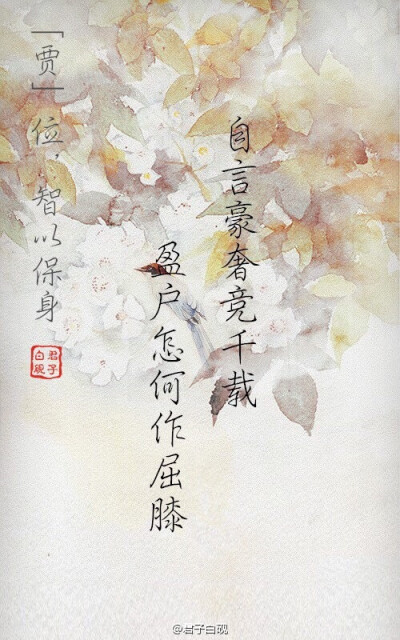 自言豪奢竞千载
盈户怎何作屈膝
「贾」位，智以保身
君子白砚
@君子白砚